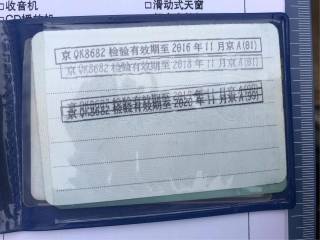 □收音机
□滑动式天窗
京QK8682 检验有效期至 2016 年 11 月京A(B1)
京QK8682 检验有效期至 2018 年 11 月京A(B1)
京QK8682 检验有效期至 2020 年 11 月京A